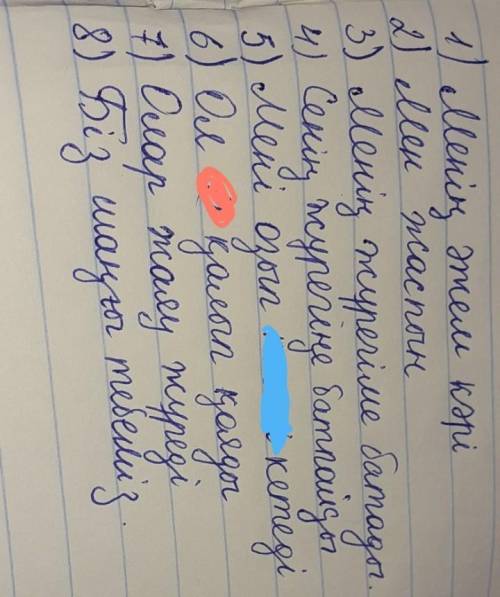 1) Менің әжем кәрі
2) Мен жаспын
3) Менің жүрегіме батады.
4) Сенің жүрегіңе батпайды
5) Мені озып кетеді
6) Ол қалып қояды
7) Олар жаяу жүреді
8) Біз шаңғы тебеміз.